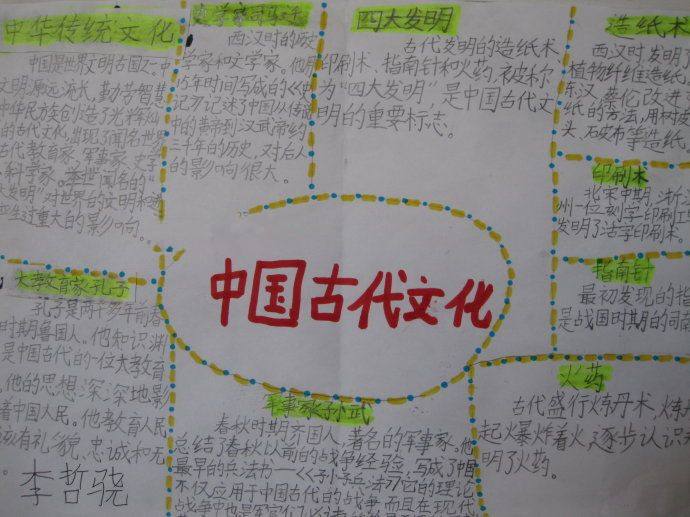 中华传统文化
中国是世界文明古国之一,中
文明源远流长,勤劳智慧
中华民族创造了光辉灿
的古代文化,出现了闻名世界
古代教育家、军事家、史学
、科学家。举世闻名的
大发明”对世界的文明和进
产生过重大的影响。
史学家司马
西汉时的历
学家和文学家。他用
15年时间写成的《史
记》记述了中国从传说
中的黄帝到汉武帝约
三千年的历史,对后人
的影响很大。
四大发明
古代发明的造纸术、
印刷术、指南针和火药,被称
为“四大发明”,是中国古代文
明的重要标志。
造纸术
西汉时发明了
植物纤维造纸,
东汉 蔡伦改进
纸的方法,用树皮
头、破布等造纸。
印刷术
北宋中期,浙江
州一位刻字印刷工
发明了活字印刷术。
指南针
最初发现的指
是战国时期的司南
火药
古代盛行炼丹术,炼丹
起火爆炸着火,逐步认识
明了火药。
中国古代文化
大教育家孔子
孔子是两千多年前春
时期鲁国人。他知识渊
是中国古代的一位大教育
,他的思想深深地影
着中国人民。他教育人民
该有礼貌,忠诚和无
李哲骁
军事家孙武
春秋时期齐国人,著名的军事家。他
总结了春秋以前的战争经验,写成了中国
最早的兵法书——《孙子兵法》它的理论
不仅应用于中国古代的战争,而且在现代
战争中也是军官们必读的